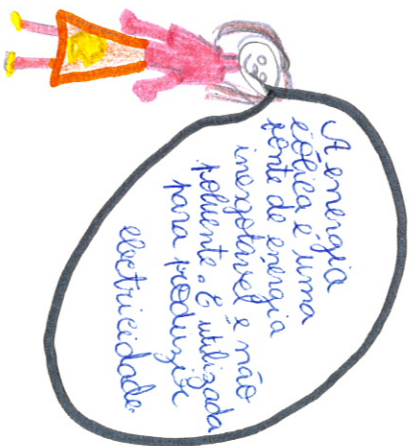 A energia
eólica é uma
fonte de energia
inesgotável e não
poluente. É utilizada
para produzir
electricidade.